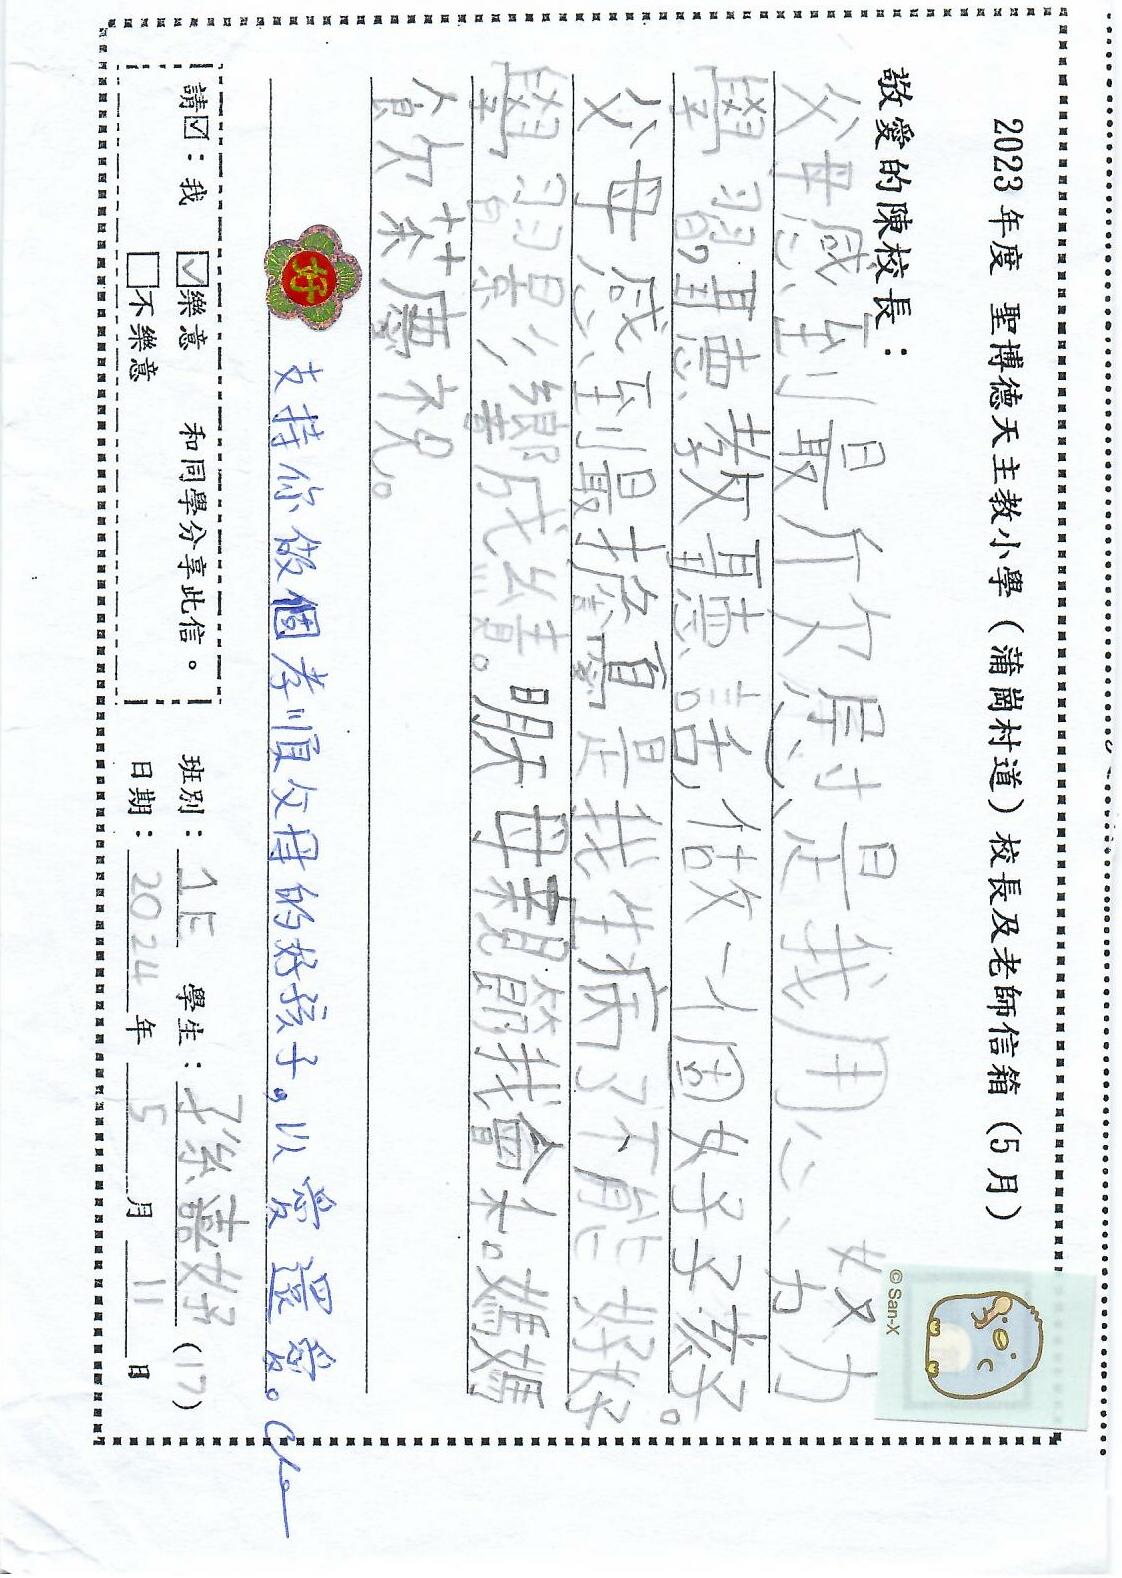 2023年度 聖博德天主教小學（蒲崗村道）校長及老師信箱（5月）
敬愛的陳校長：
父母感到最欣慰時是我用心、努力
學習聽聽教聽話做一個好子孩。
父母感到最擔憂是我生病了不能好好
學習影響成績。明天母親節我會未。媽媽
飲茶慶祝。
好
支持你做個孝順父母的好孩子，以愛還愛。Cha
請☑：我 ☑樂意 和同學分享此信。
□不樂意
班別：1E 學生：孫 (17)
日期：2024年5月11日
© San-X